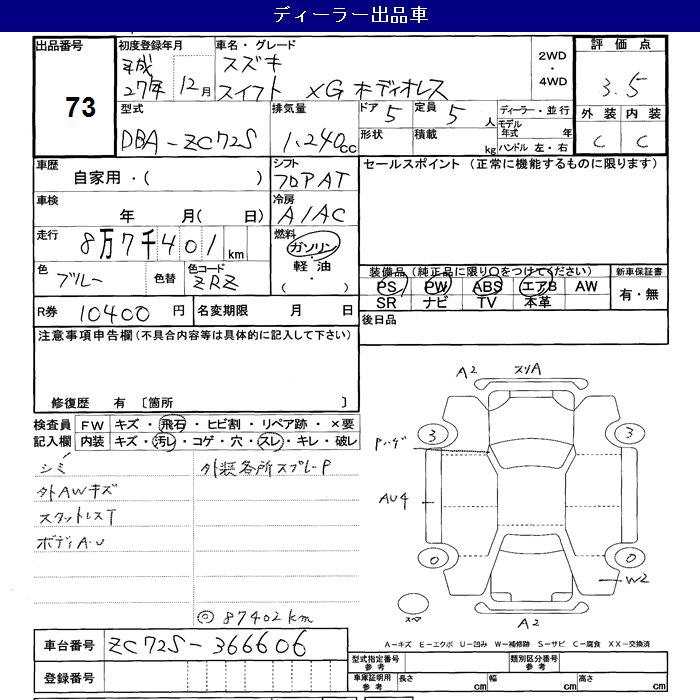 ディーラー出品車
出品番号 73
初度登録年月 平成27年 12月
車名・グレード スズキ スイフト XG ホディオレス
2WD・4WD
評価点 3.5
外装 内装
C C
型式 DBA-ZC72S
排気量 1.240cc
ドア 5 形状
定員 5人 積載 kg
ディーラー・並行
モデル年式 年
ハンドル 左・右
車歴 自家用・( )
シフト フロアAT
車検 年 月( 日)
冷房 A/AC
走行 8万7千401km
燃料 ガソリン・軽油・( )
色 ブルー 色替 色コード ZRZ
R券 10400円 名変期限 月 日
セールスポイント(正常に機能するものに限ります)
装備品(純正品に限り○をつけてください) 新車保証書
PS PW ABS エアB AW 有・無
SR ナビ TV 本革
後日品
注意事項申告欄(不具合内容等は具体的に記入して下さい)
修復歴 有 〔箇所 〕
検査員 FW キズ・飛石・ヒビ割・リペア跡・×要
記入欄 内装 キズ・汚レ・コゲ・穴・スレ・キレ・破レ
シミ 外装各所スプレーP
外AWキズ
スタットレスT
ボディA.U
◎87402km
A2 スリA
3 3
Pハゲ
AU4
0 0
W2
スペア
A2
A-キズ E-エクボ U-凹み W-補修跡 S-サビ C-腐食 XX-交換済
車台番号 ZC72S-366606
登録番号
型式指定番号 参考 類別区分番号 参考
車庫証明用 参考 長さ cm 幅 cm 高さ cm